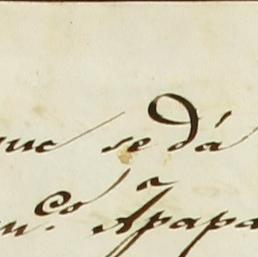 que se dá
m.co Apapa